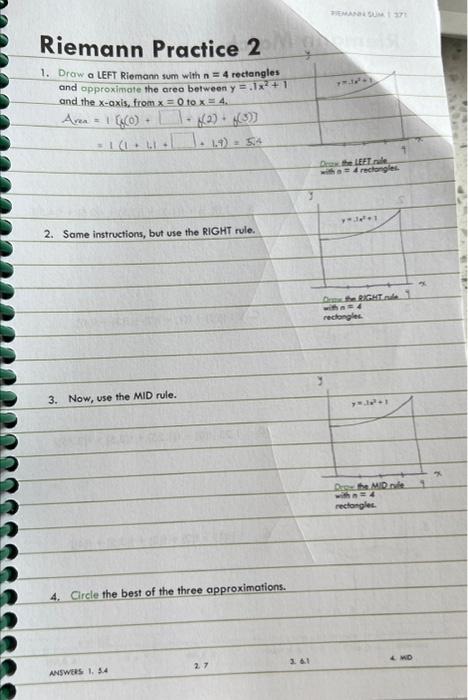 RIEMANN SUM | 371
Riemann Practice 2
1. Draw a LEFT Riemann sum with n = 4 rectangles
and approximate the area between y = .1x² + 1
and the x-axis, from x = 0 to x = 4.
Area = 1 [f(0) + □ + f(2) + f(3)]
= 1 (1 + 1.1 + □ + 1.9) = 5.4
y
y = .1x² + 1
4
Draw the LEFT rule
with n = 4 rectangles.
2. Same instructions, but use the RIGHT rule.
y
y = .1x² + 1
4
x
Draw the RIGHT rule
with n = 4
rectangles.
3. Now, use the MID rule.
y
y = .1x² + 1
4
x
Draw the MID rule
with n = 4
rectangles.
4. Circle the best of the three approximations.
ANSWERS 1. 5.4
2. 7
3. 6.1
4. MID